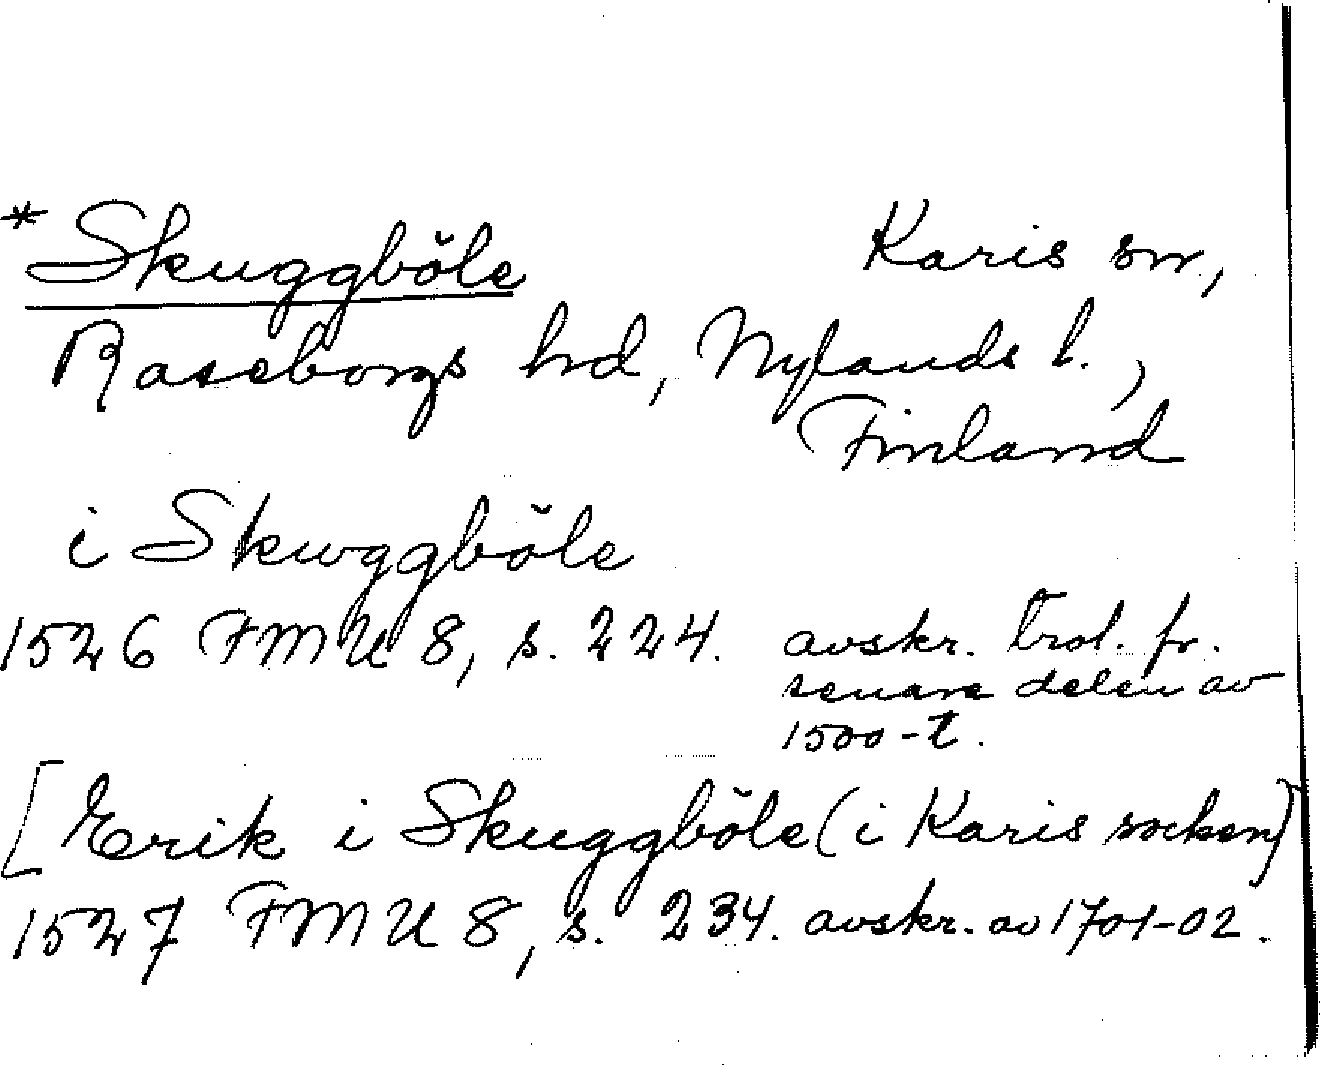 * Skuggböle Karis sn,
Raseborgs hrd, Nylands l.,
Finland
i Skuggböle
1526 FMU 8, s. 224. avskr. trol. fr.
senare delen av
1500-t.
[Erik i Skuggböle (i Karis socken)
1527 FMU 8, s. 234. avskr. av 1701-02.